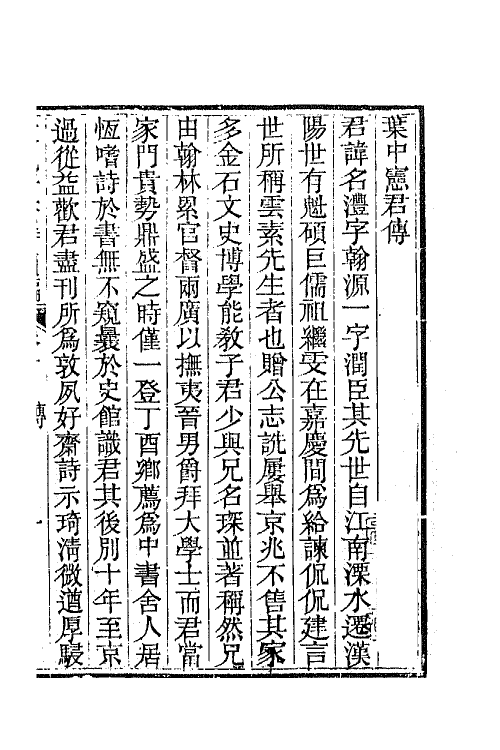 葉中憲君傳
君諱名澧字翰源一字潤臣其先世自江南溧水遷漢
陽世有魁碩巨儒祖繼雯在嘉慶間爲給諫侃侃建言
世所稱雲素先生者也贈公志詵屢舉京兆不售其家
多金石文史博學能敎子君少與兄名琛並著稱然兄
由翰林累官督兩廣以撫夷晉男爵拜大學士而君當
家門貴勢鼎盛之時僅一登丁酉鄉薦爲中書舍人居
恆嗜詩於書無不窺曩於史館識君其後別十年至京
過從益歡君盡刊所爲敦夙好齋詩示琦淸微遒厚駸
傳
一